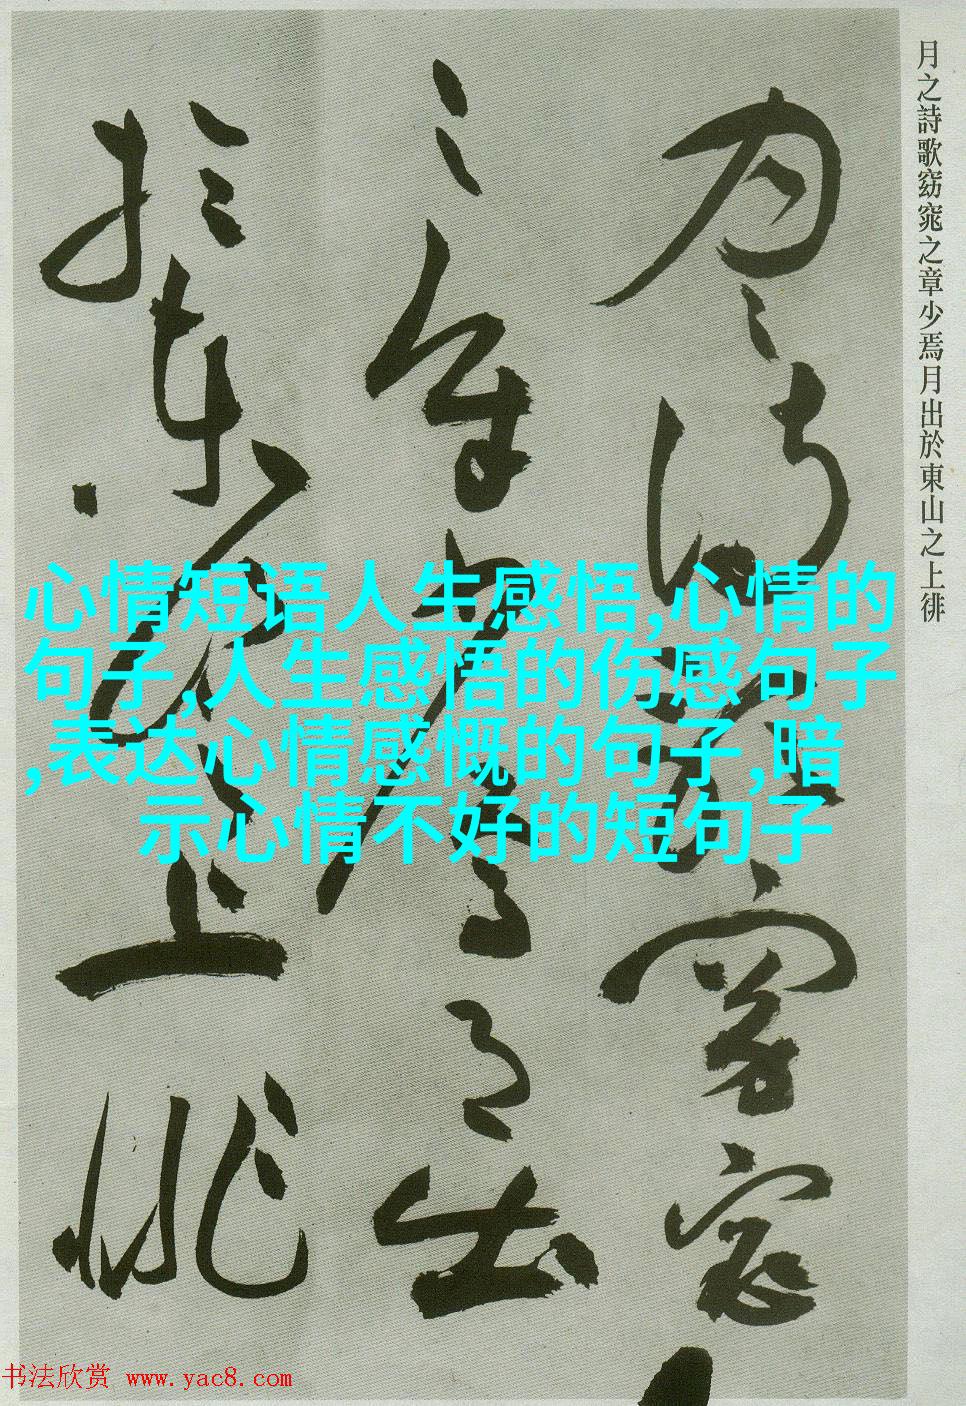 月之詩歌窈窕之章少焉月出於東山之上徘
月之詩歌窈窕
之章少焉月出
於東山之上徘
心情短语人生感悟,心情的
句子,人生感悟的伤感句子
,表达心情感慨的句子,暗
示心情不好的短句子
书法欣赏 www.yac8.com